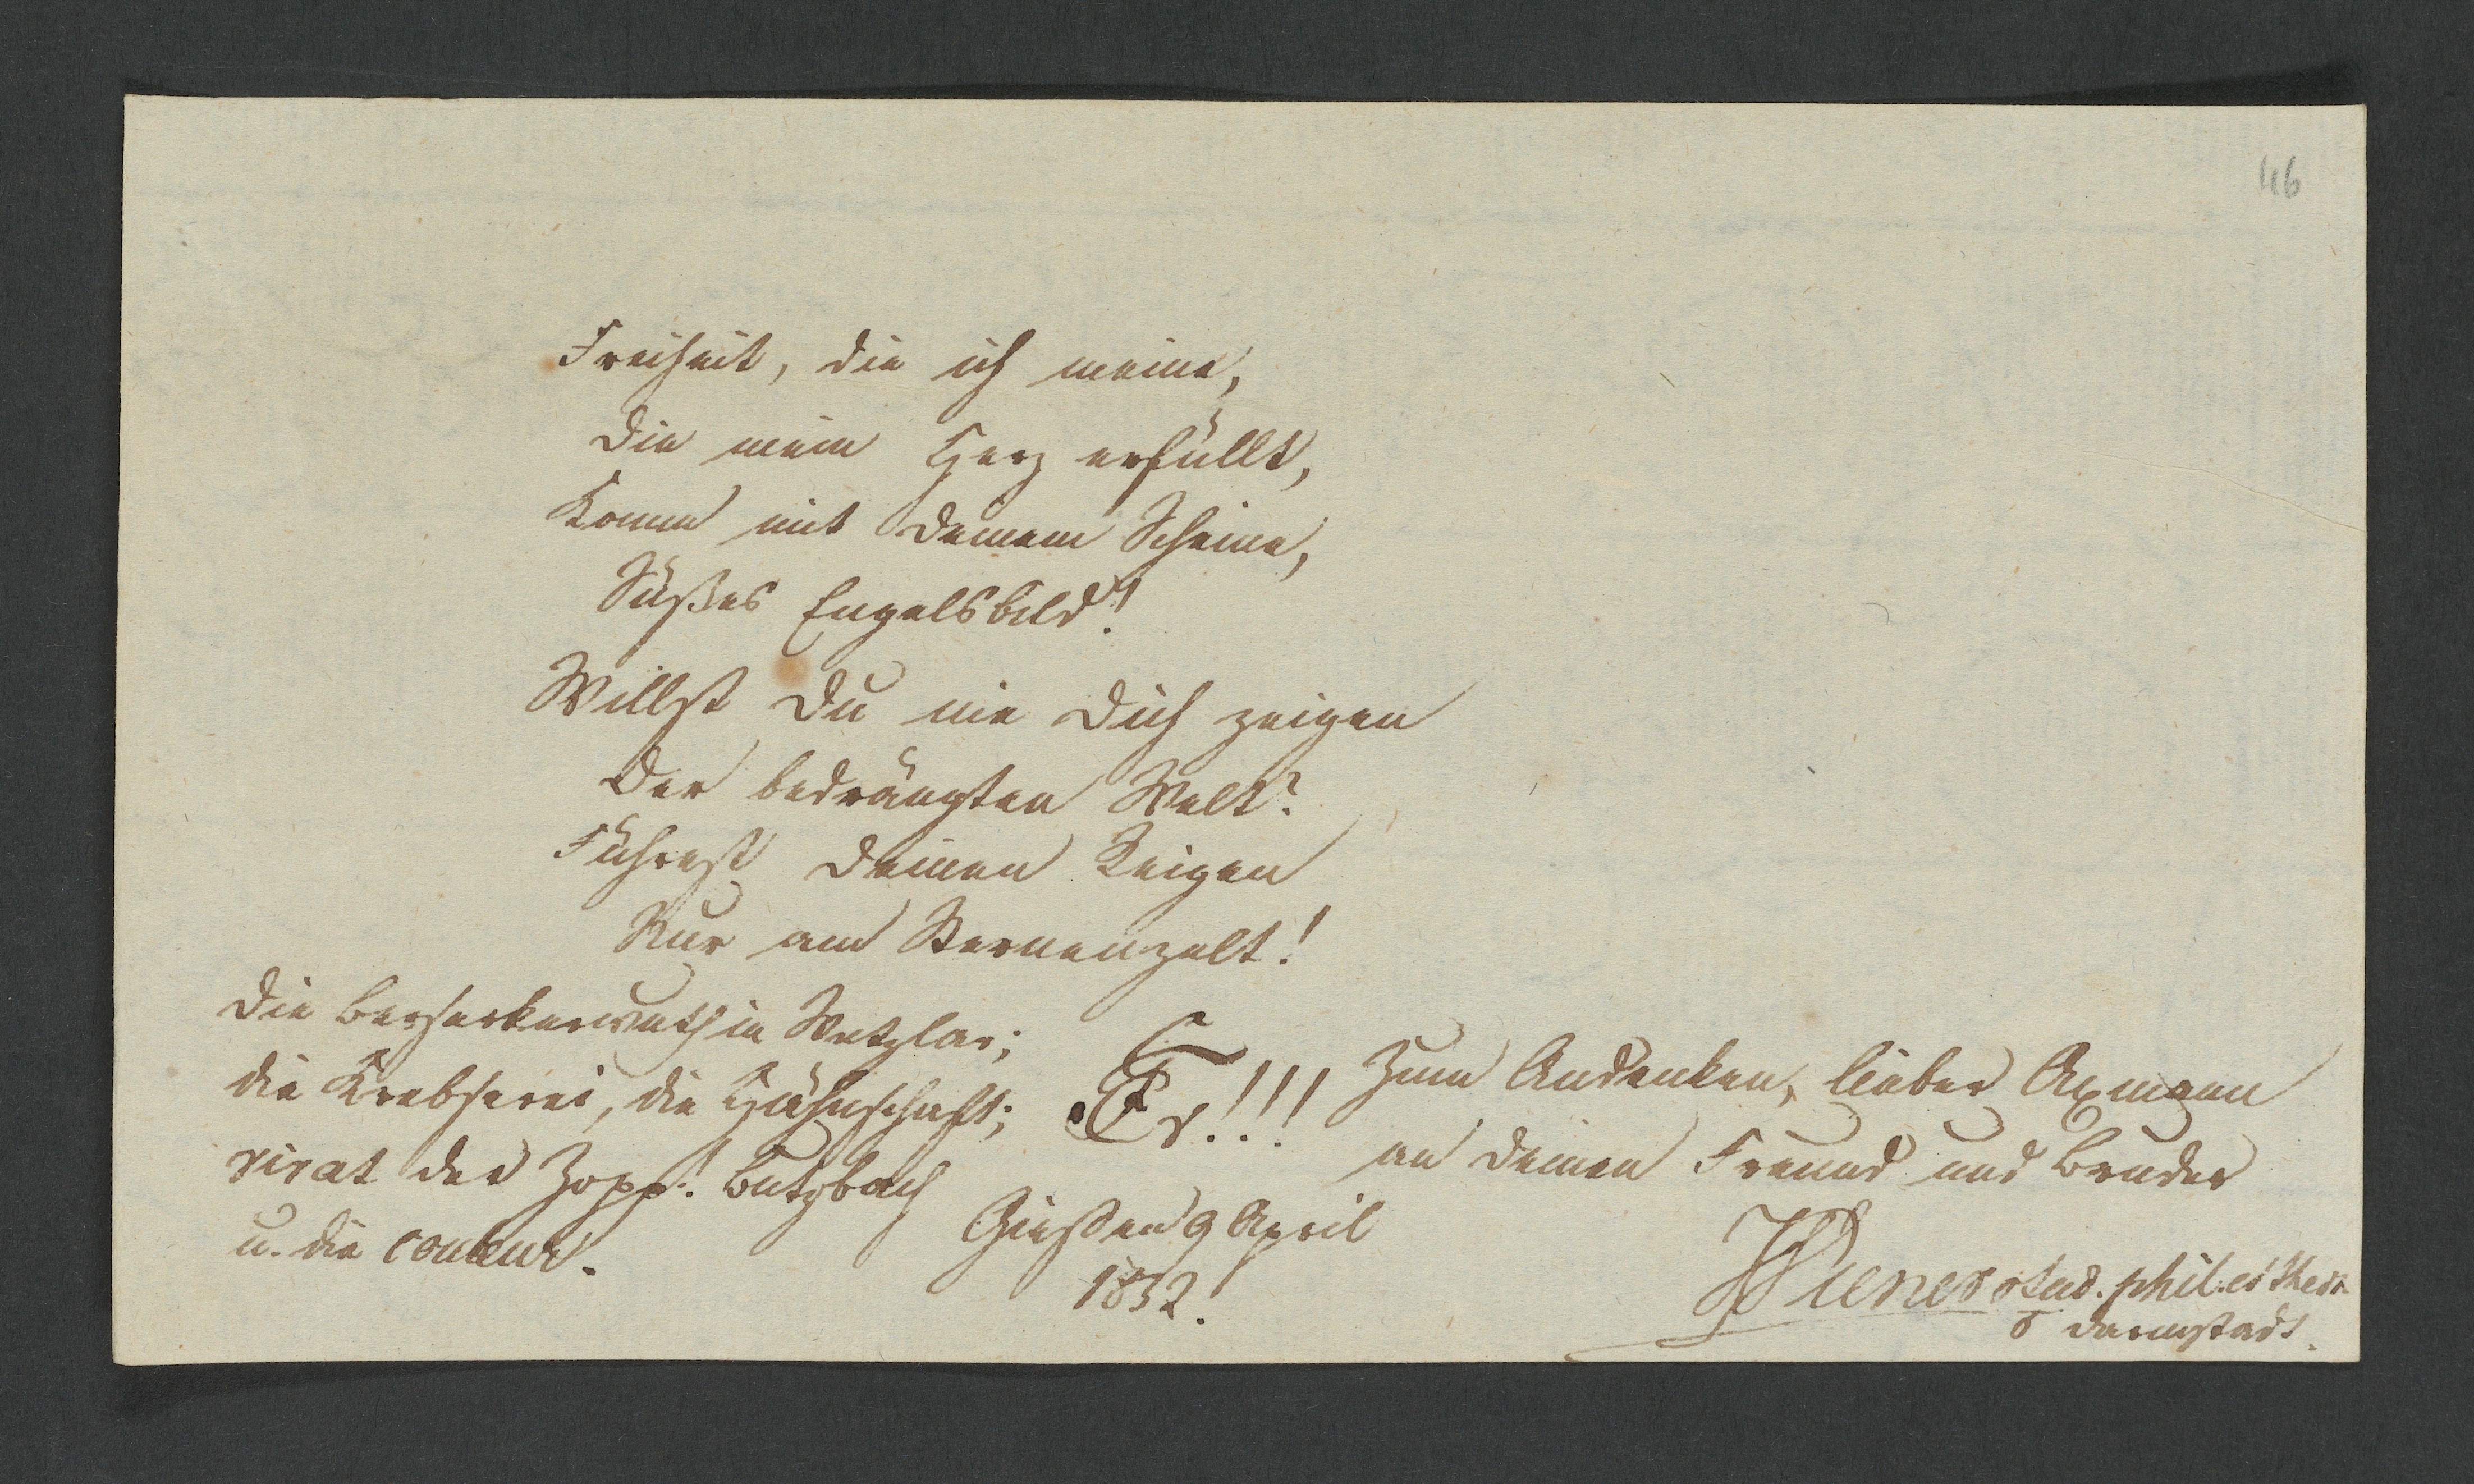 46
Freiheit, die ich meine,
Die mein Herz erfüllt,
Komm mit Deinem Scheine,
Süßes Engelsbild!
Willst Du nie Dich zeigen
Der bedrängten Welt?
Führest Deinen Reigen
Nur am Sternenzelt!
Die Berserkerwuth in Wetzlar;
die Krebserei, die Hähnschaft;
vivat der Zopf! Butzbach
u. die couleur.
Gießen 9 April
1832!
Zum Andenken, lieber Axmann
an Deinen Freund und Bruder
Wiener stud. phil. et theol.
Darmstadt.